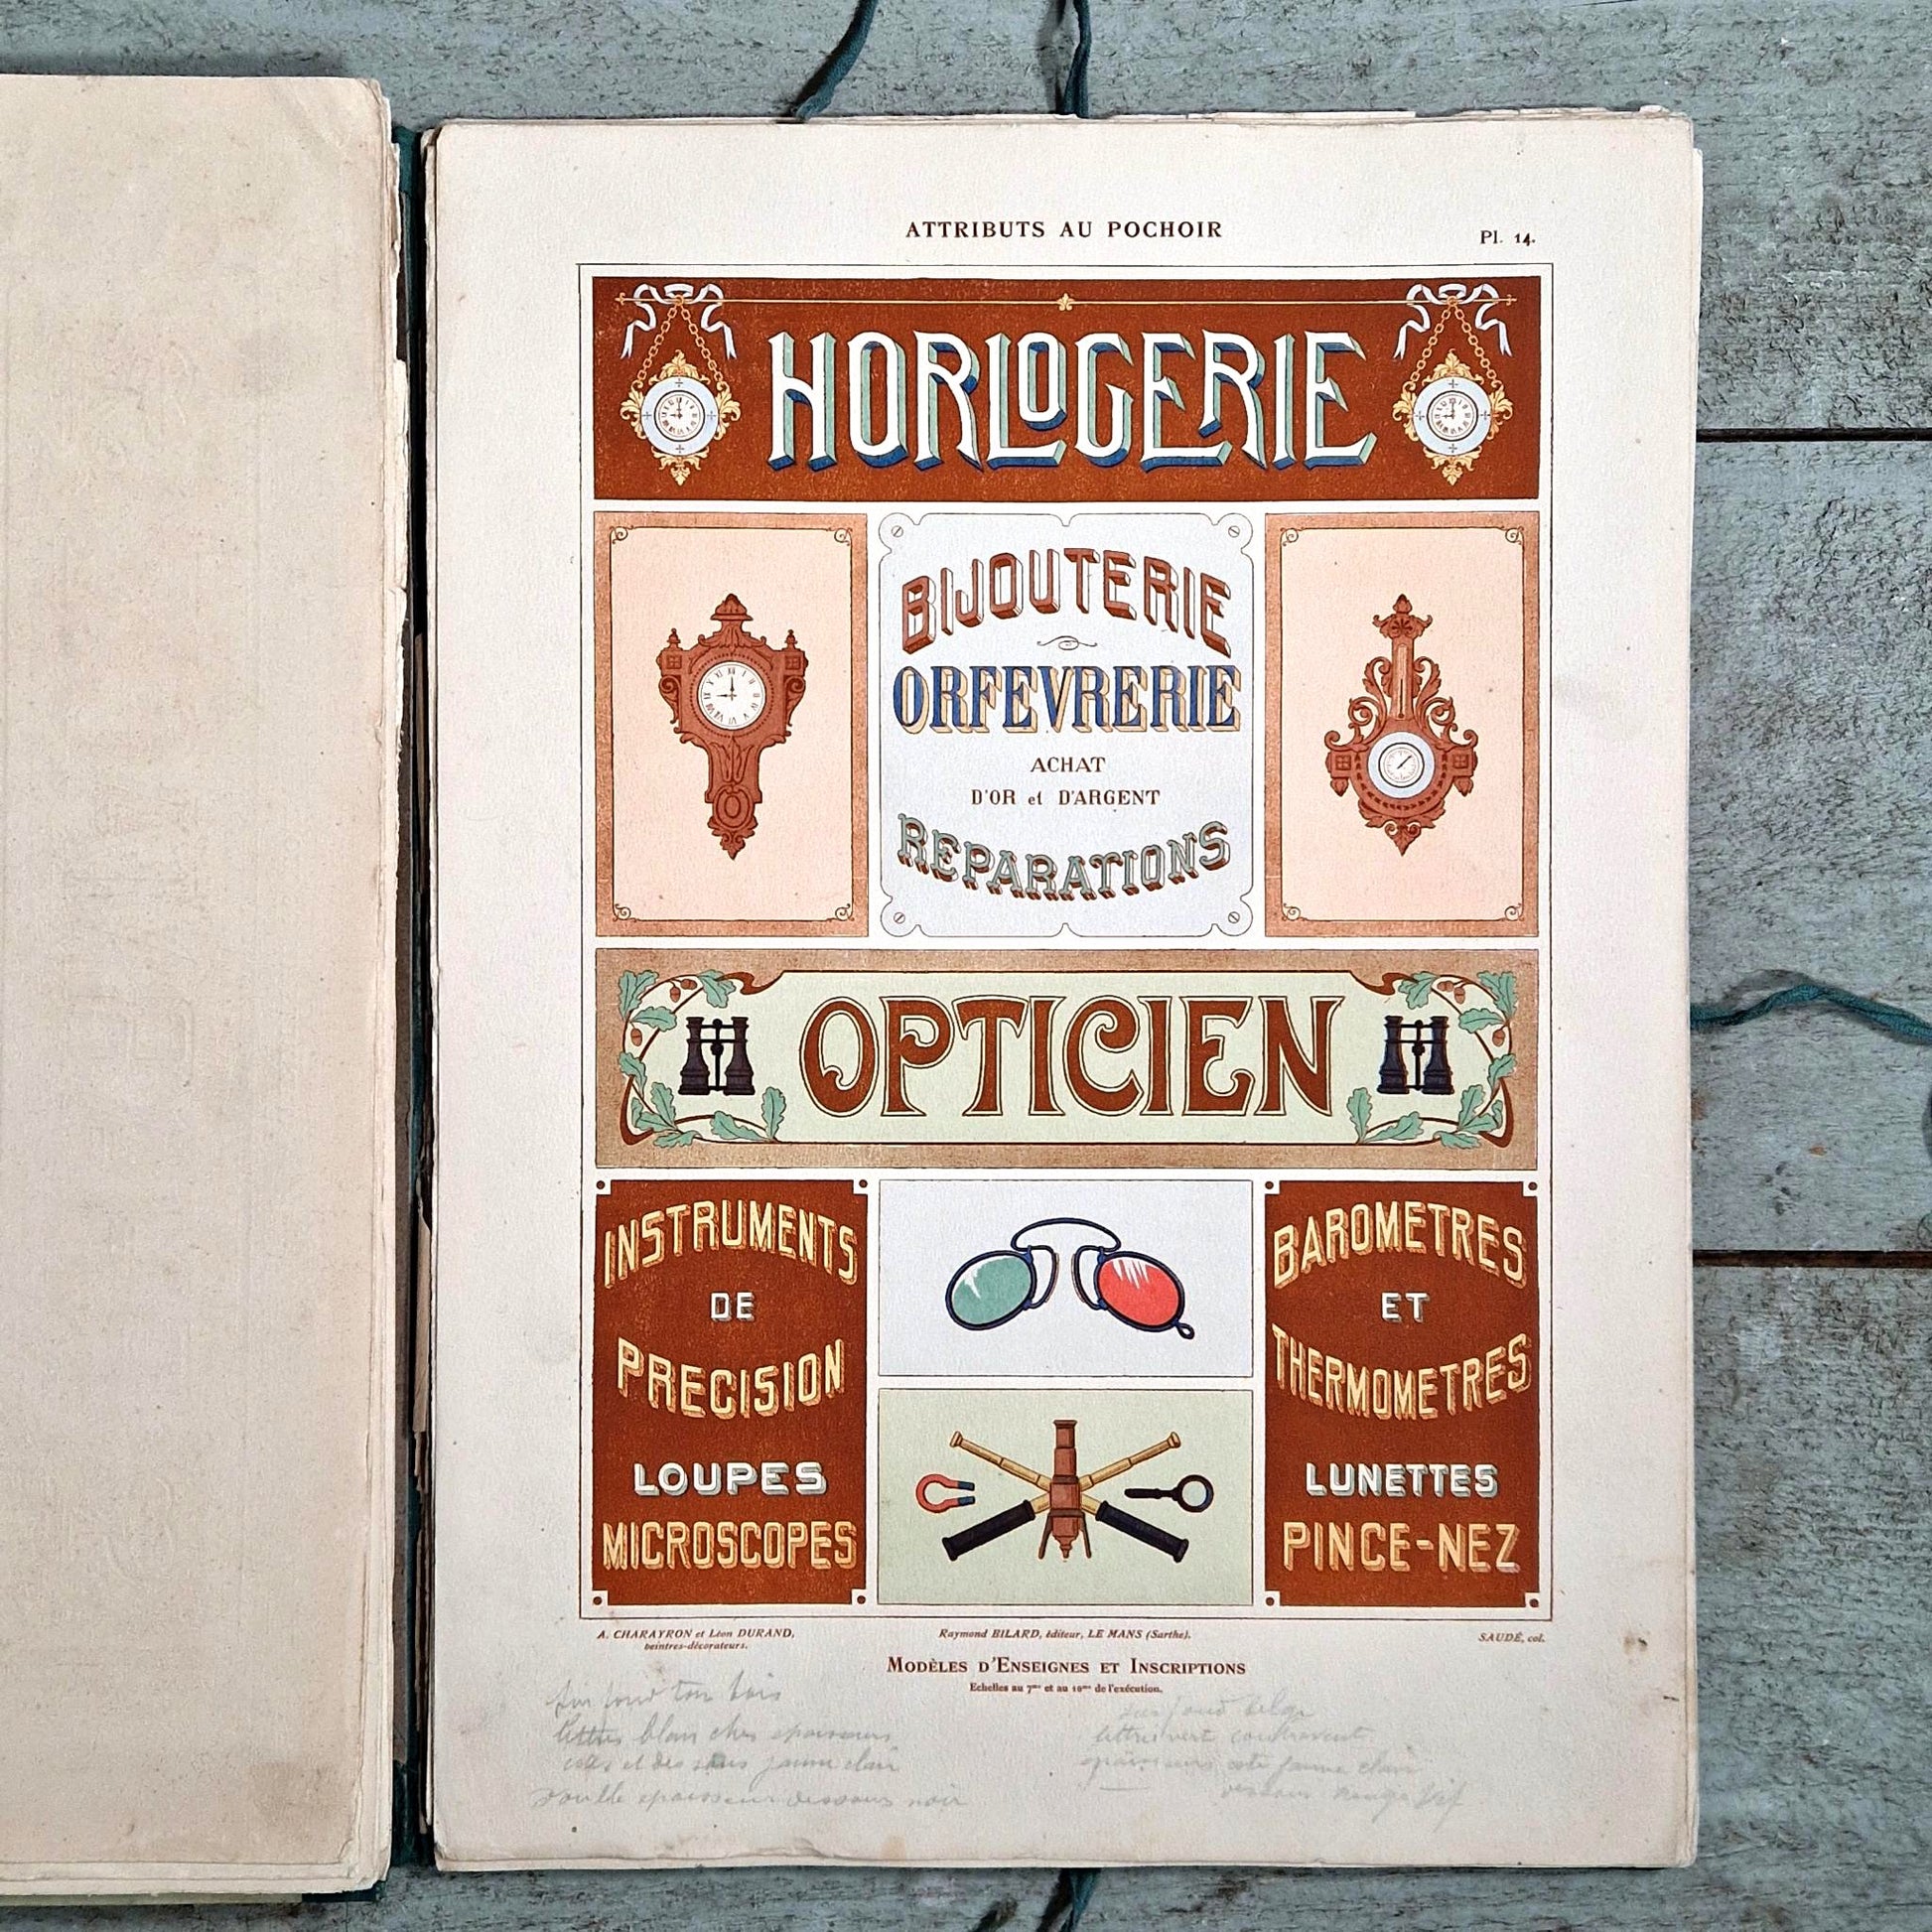 ATTRIBUTS AU POCHOIR
Pl. 14.
HORLOGERIE
BIJOUTERIE
ORFEVRERIE
ACHAT
D'OR et D'ARGENT
REPARATIONS
OPTICIEN
INSTRUMENTS
DE
PRECISION
LOUPES
MICROSCOPES
BAROMETRES
ET
THERMOMETRES
LUNETTES
PINCE-NEZ
A. CHARAYRON et Léon DURAND,
peintres-décorateurs.
Raymond BILARD, éditeur, LE MANS (Sarthe).
SAUDÉ, col.
MODÈLES D'ENSEIGNES ET INSCRIPTIONS
Echelles au 7me et au 10me de l'exécution.
fond ton bois
lettres
et dessous jaune clair
epaisseur dessous noir
fond
vert
jaune clair
dessous rouge vif